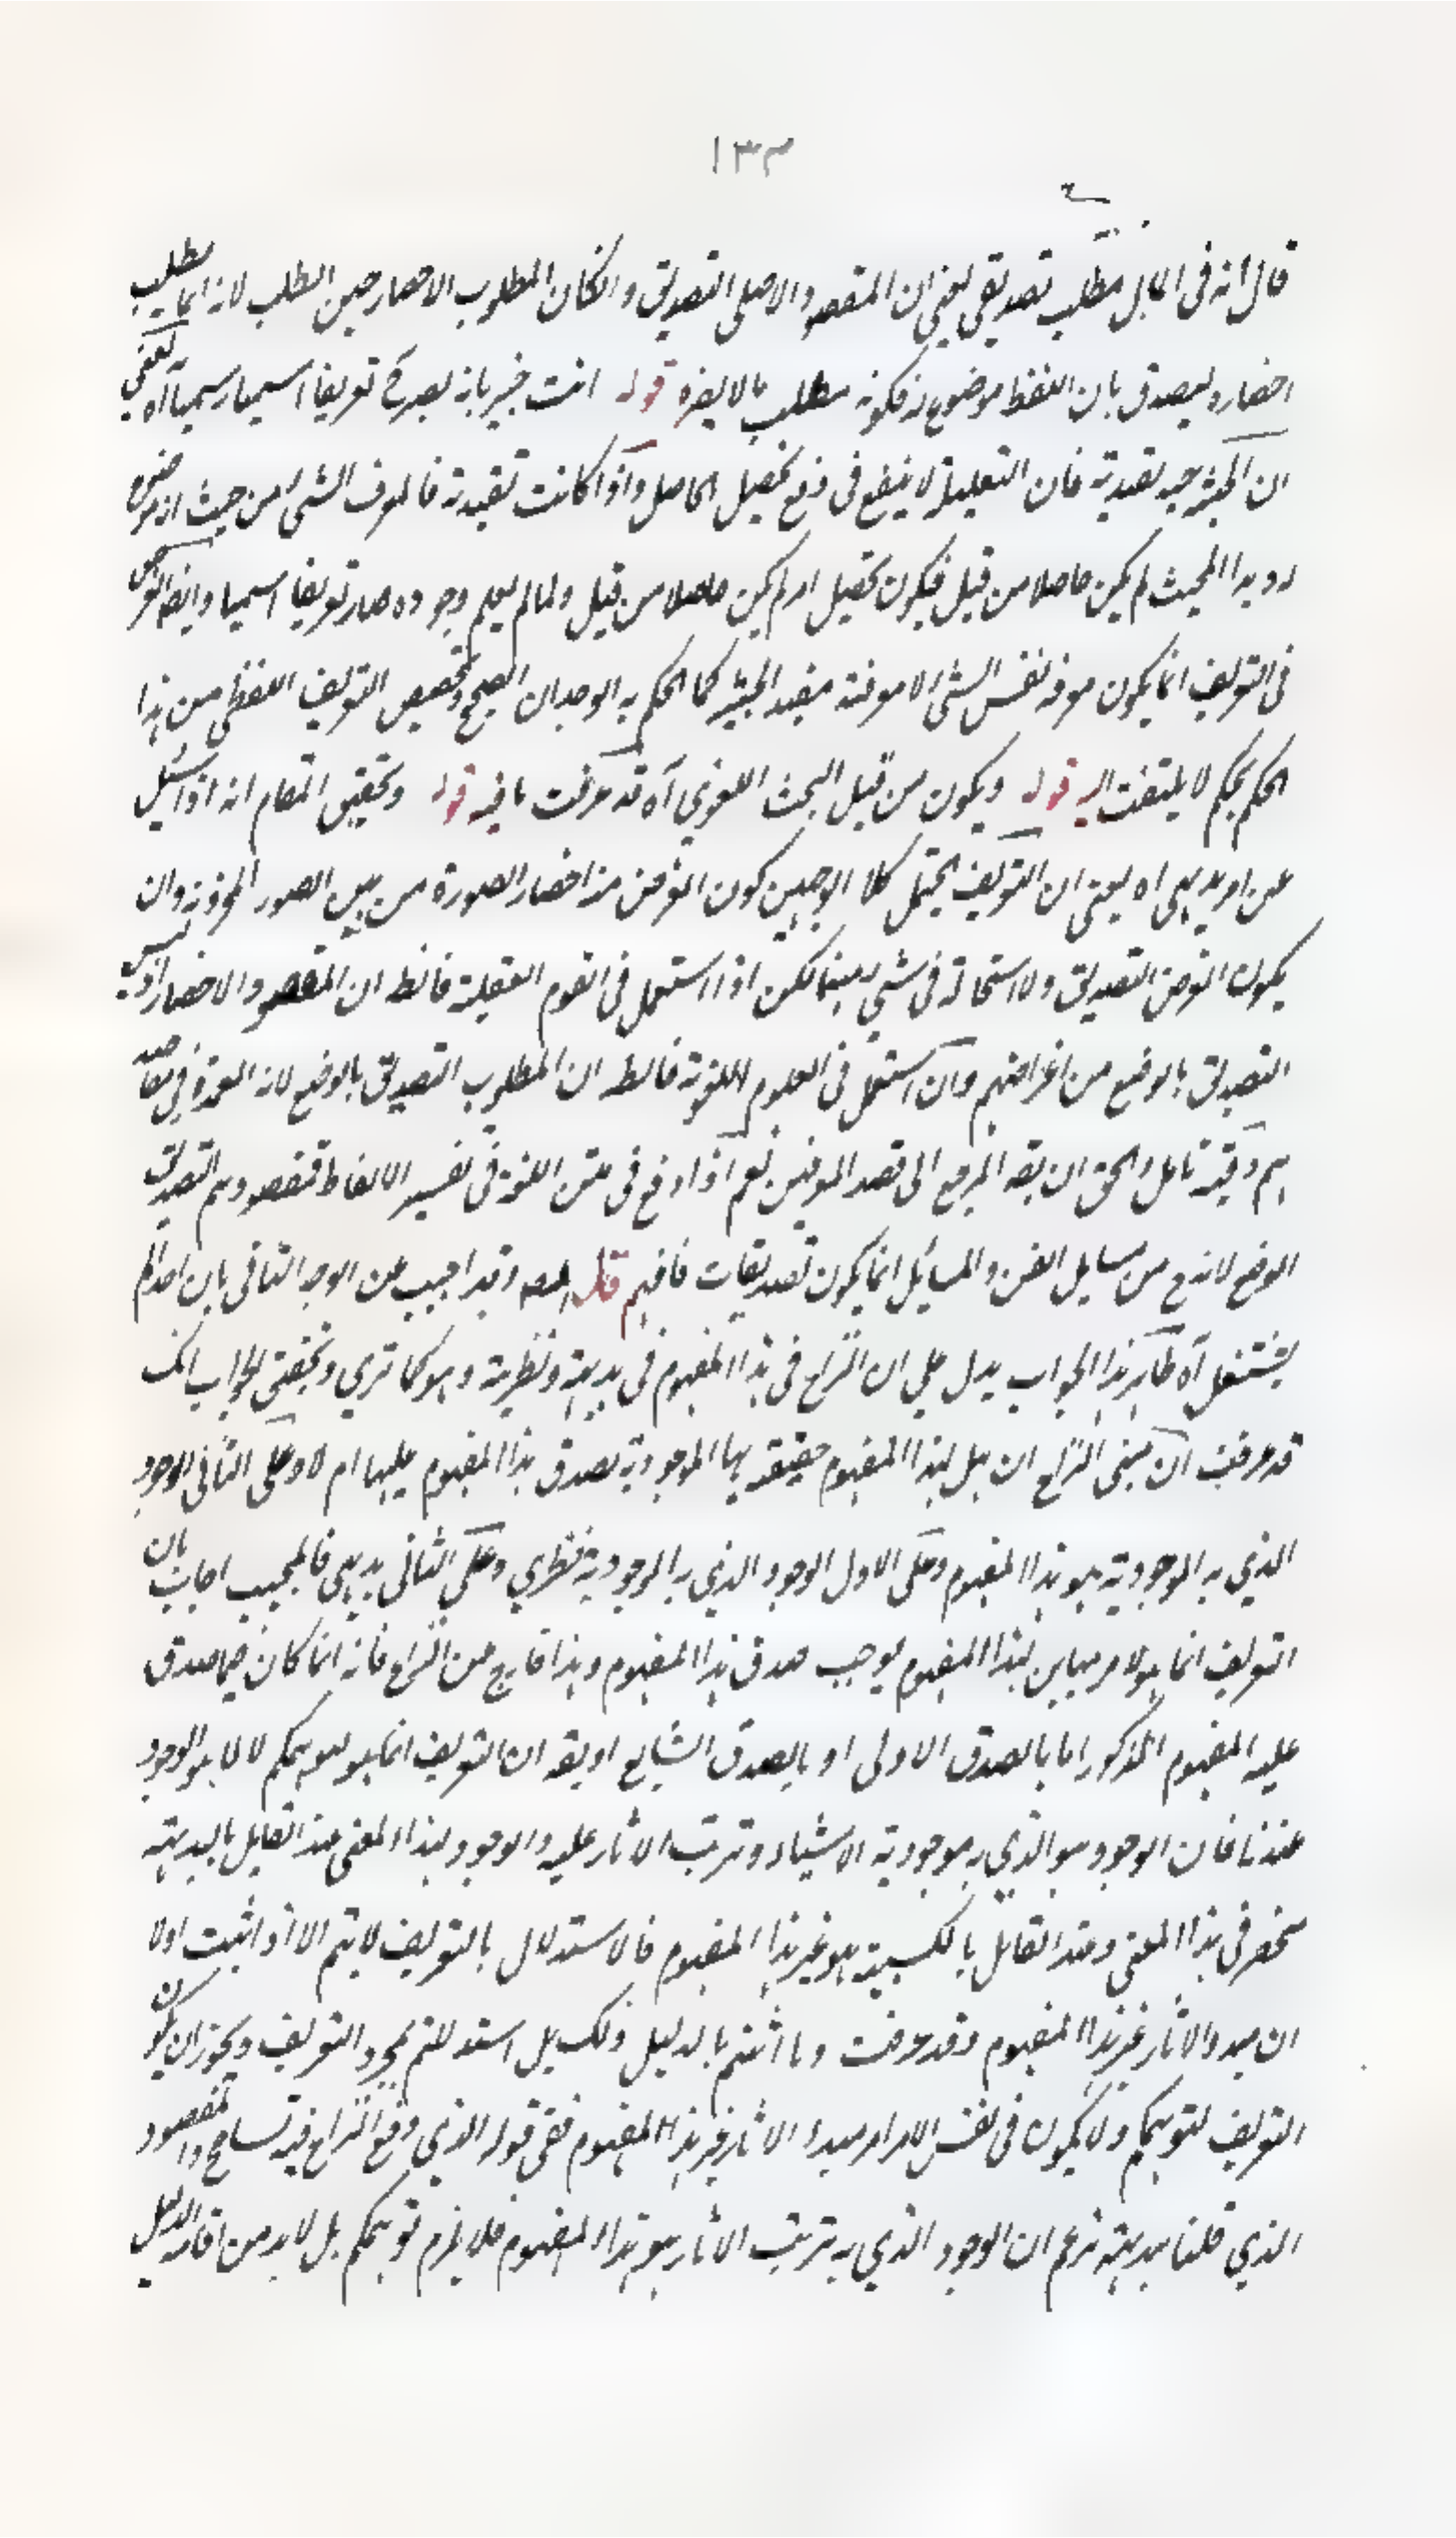 ١٣٣
قال انه فى المال مطلب تصديقى يعنى ان المقصود الاصلى التصديق وانكان المطلوب الاحضار حين الطلب لانه انما يطلب
احضاره ليصدق بان اللفظ موضوع له فكونه مطلب ما لا يضره قوله انت خبير بانه يصير ح تعريفا اسميا رسميا آه
ان الحيثية حيثية تقيدية فان التعليلة لا ينفع فى دفع تحصيل الحاصل واذا كانت تقيدية فالمعرف الشى من حيث انه
لم يكن حاصلا من قبل فيكون تحصيل امر لم يكن حاصلا من قبل ولما لم يعلم وجوده صار تعريفا اسميا وايضا الغرض
فى التعريف انما يكون معرفة نفس الشى لا معرفته مقيد الحيثية كما الحكم به الوجدان الصحيح وتخصيص التعريف اللفظى من هذا
الحكم تحكم لا يلتفت اليه قوله ويكون من قبل البحث اللغوى آه قد عرفت ما فيه قوله وتحقيق المقام انه اذا سئل
عن امر بديهى اه يعنى ان التعريف يحتمل كلا الوجهين كون الغرض منه احضار الصورة من بين الصور المخزونة وان
يكون الغرض التصديق ولا استحالة فى شى بينهما لكن اذا استعمل فى العلوم العقلية فالظ ان المقصود الاحضار اذ ليس
التصديق بالوضع من اغراضهم وان استعمل فى العلوم اللغوية فالظ ان المطلوب التصديق بالوضع لانه العمدة فى مقاصد
هم وفيه تامل والحق ان يقه المرجع الى قصد المعرفين نعم اذا وقع فى متن اللغة فى تفسير الالفاظ فمقصودهم التصديق
الوضع لانه ح من مسايل الفن والمسايل انما يكون تصديقات فافهم قال المصه وقد اجيب عن الوجه الثانى بان احدا لم
يشتغل آه ظاهر هذا الجواب يدل على ان النزاع فى هذا المفهوم فى بديهية ونظرية وهو كما ترى وتحقيق الجواب انك
قد عرفت ان مبنى النزاع ان هل لهذا المفهوم حقيقة بها الموجودية يصدق هذا المفهوم عليها ام لا وعلى الثانى الوجود
الذي به الموجودية هو هذا المفهوم وعلى الاول الوجود الذي به الموجودية نظري وعلى الثانى بديهى فالمجيب اجاب بان
التعريف انما هو لامر مباين لهذا المفهوم يوجب صدق هذا المفهوم وهذا خارج عن النزاع فانه انما كان فيما صدق
عليه المفهوم المذكور اما بالصدق الاولى او بالصدق الشايع او يقه ان التعريف انما هو لموهومكم لا لما هو الوجود
عندنا فان الوجود هو الذي به موجودية الاشياء وترتب الاثار عليه والوجود بهذا المعنى عند القايل بالبديهية
منحصر فى هذا المعنى وعند القايل بالكسبية هو غير هذا المفهوم فالاستدلال بالتعريف لا يتم الا اذا اثبت اولا
ان مبدء الاثار غير هذا المفهوم وقد عرفت وما اثبتم بالدليل ذلك بل استدللتم بمجرد التعريف ويجوز ان يكون
التعريف لتوهمكم ولا يكون فى نفس الامر امر مبدء الاثار غير هذا المفهوم ففى قوله الذي وقع النزاع فيه تسامح والمقصود
الذي قلنا ببديهيته نزعم ان الوجود الذي به ترتب الاثار هو هذا المفهوم فلا يلزم توهمكم بل لا بد من اقامة الدليل